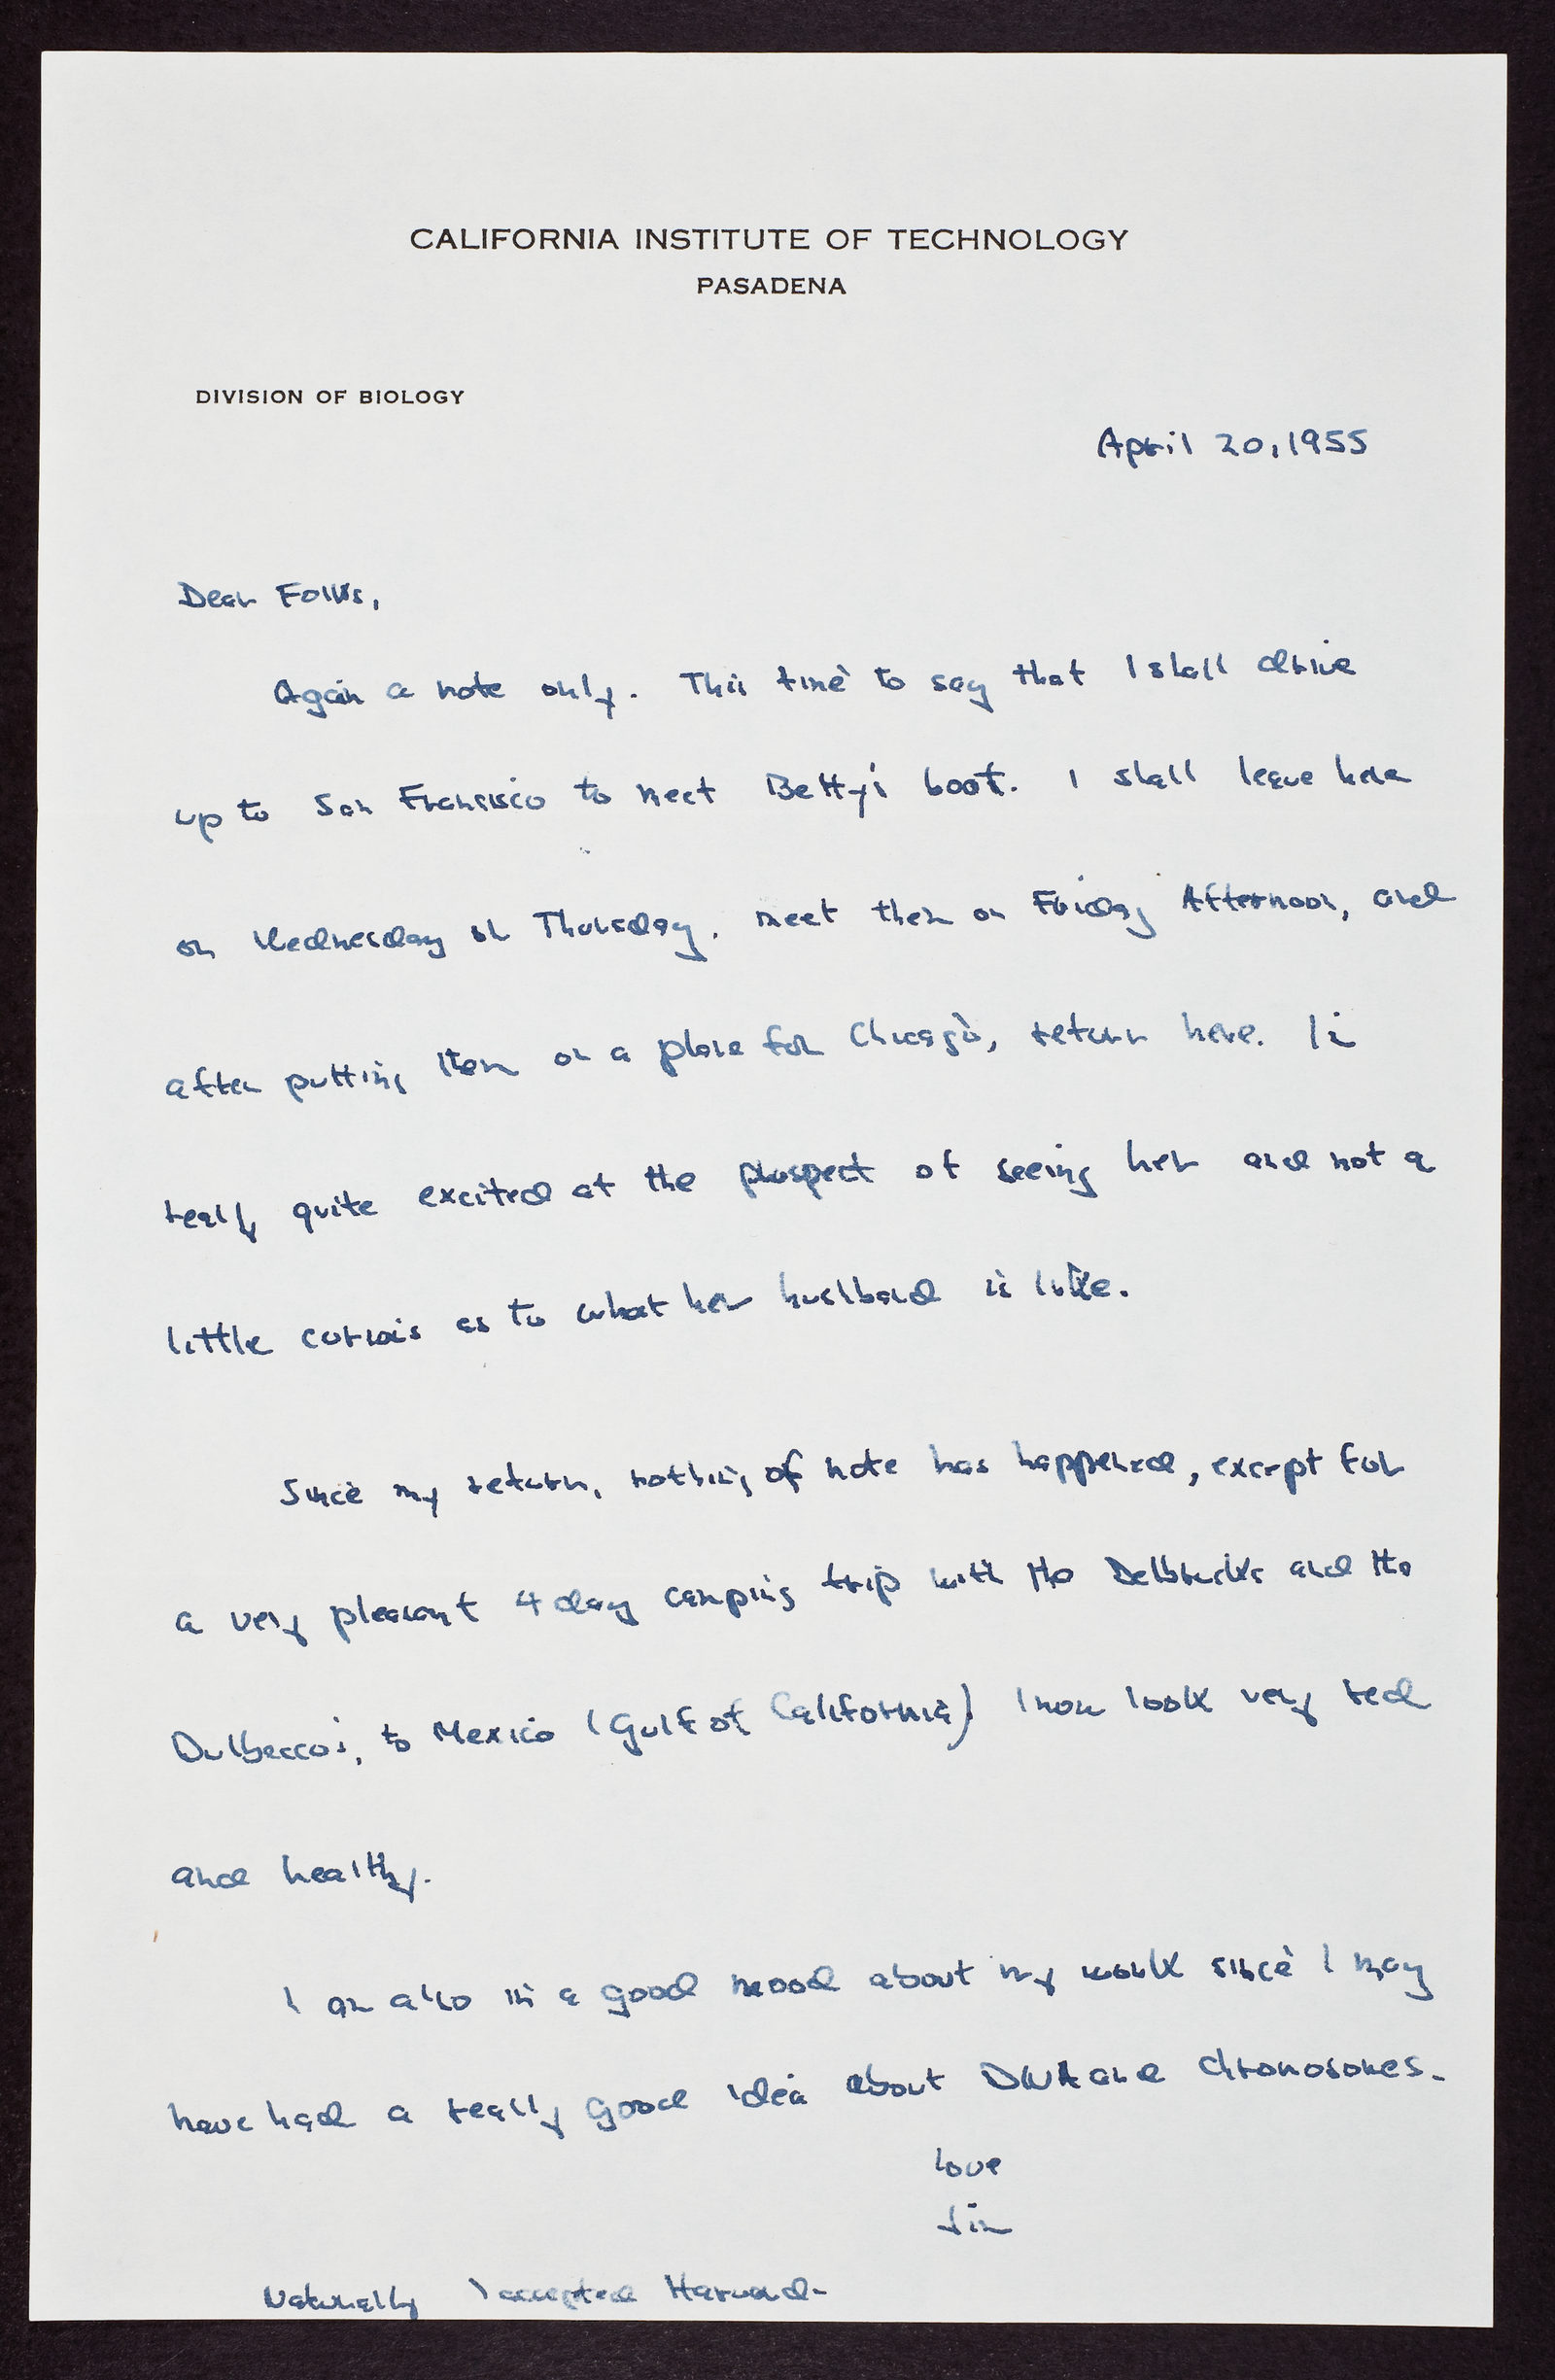 CALIFORNIA INSTITUTE OF TECHNOLOGY
PASADENA
DIVISION OF BIOLOGY
April 20, 1955
Dear Folks,
Again a note only. This time to say that I shall drive
up to San Francisco to meet Betty's boat. I shall leave here
on Wednesday or Thursday, meet them on Friday Afternoon, and
after putting them on a plane for Chicago, return here. I'm
really quite excited at the prospect of seeing her and not a
little curious as to what her husband is like.
Since my return, nothing of note has happened, except for
a very pleasant 4 day camping trip with the Delbrucks and the
Dulbecco's, to Mexico (Gulf of California) I now look very red
and healthy.
I am also in a good mood about my work since I may
have had a really good idea about DNA and Chromosomes.
love
Jim
Naturally I accepted Harvard-